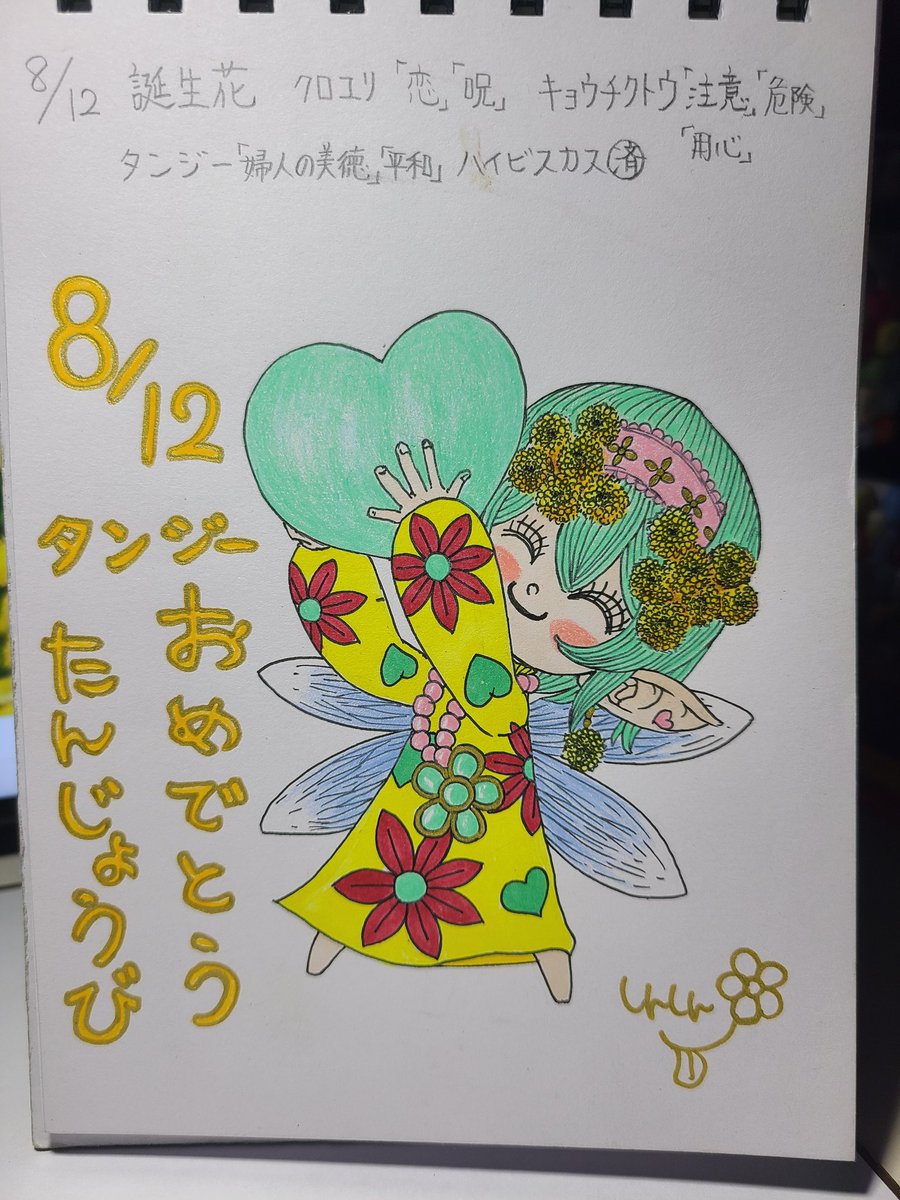 8/12 誕生花 クロユリ「恋」「呪」 キョウチクトウ「注意」「危険」
「用心」
タンジー「婦人の美徳」「平和」 ハイビスカス㊡
8/12
タンジー
たんじょうび
おめでとう